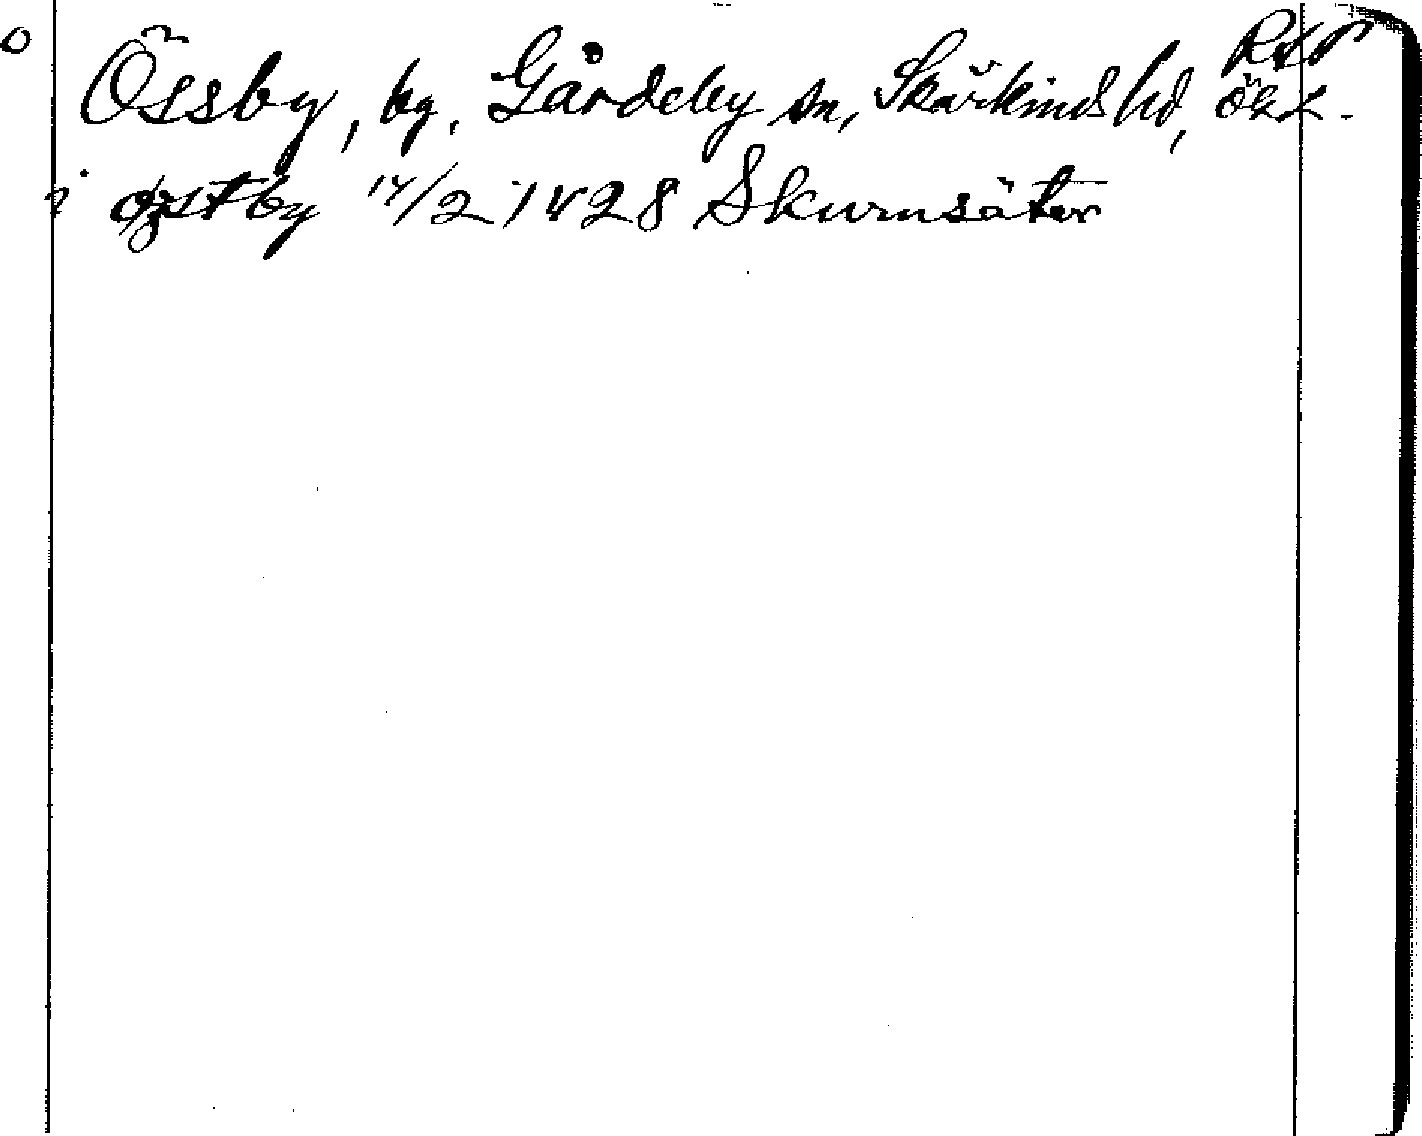 Össby, by, Gårdeby sn, Skärkinds hd, ögl.
i øzstby 14/2 1428 Skurusäter